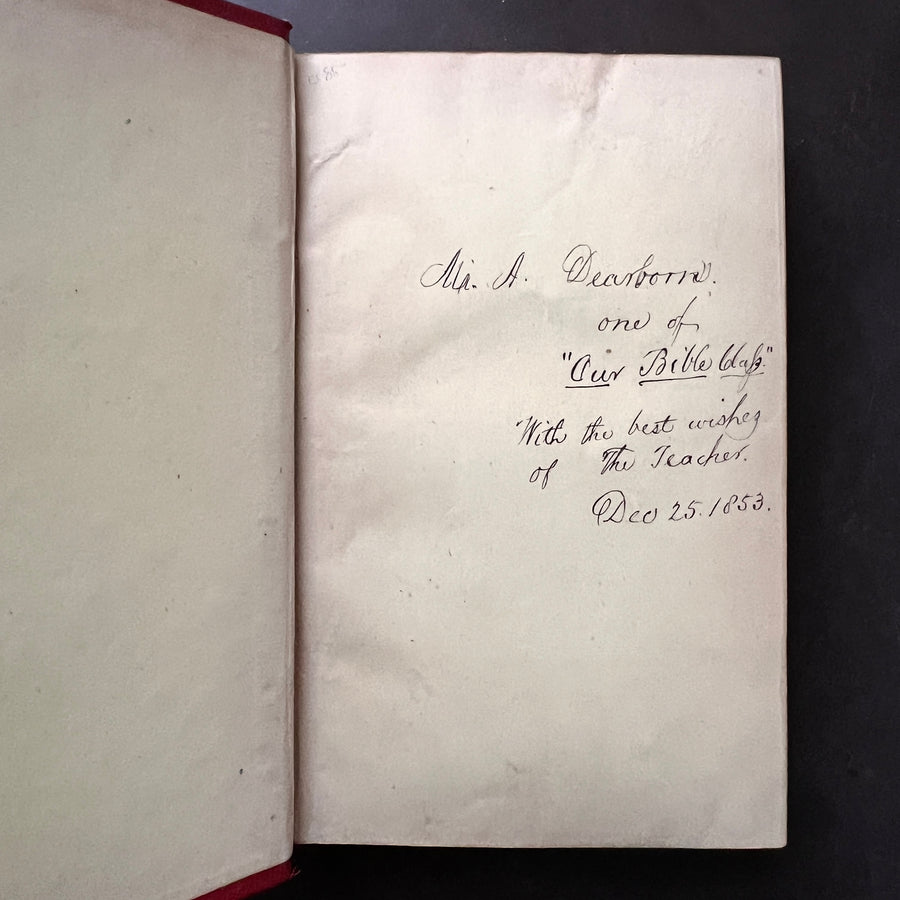 Mr. A. Dearborn.
one of
"Our Bible Class."
With the best wishes
of The Teacher.
Dec 25. 1853.